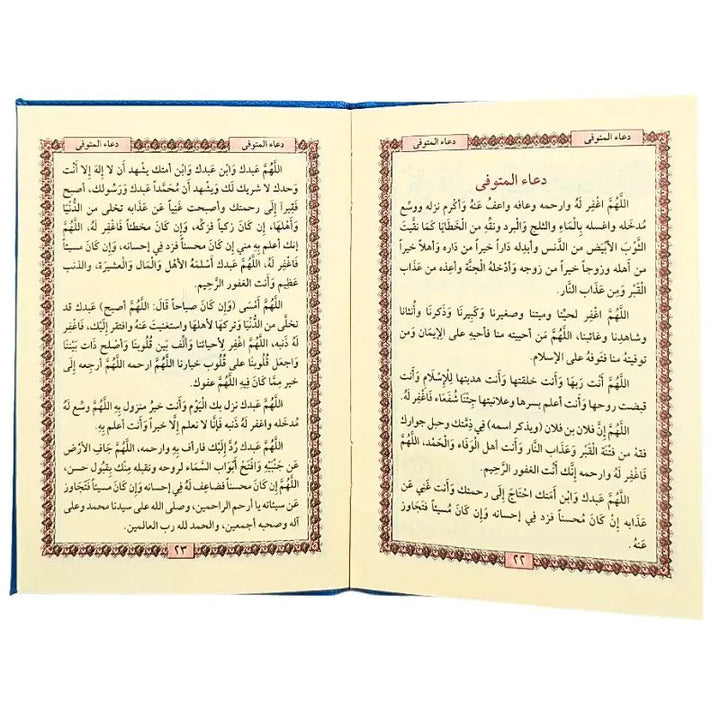 دعاء المتوفى دعاء المتوفى
دعاء المتوفى
اللَّهُمَّ اغْفِر لَهُ وارحمه وعافه واعفُ عَنهُ وَأَكْرم نزله ووسِّع
مُدخَله واغسله بِالْمَاءِ والثلج وَالْبرد ونقّه من الْخَطَايَا كَمَا نقَّيتَ
الثَّوْبَ الأبْيَض من الدَّنس وأبدِله دَاراً خيراً من دَاره وَأهلاً خيراً
من أَهله وزوجاً خيراً من زوجه وَأدْخلهُ الْجنَّة وأعِذه من عَذَاب
الْقَبْر وَمِن عَذَابِ النَّار.
اللَّهُمَّ اغْفِر لحيِّنا وميتنا وصغيرنا وَكَبِيرنَا وَذَكرنَا وأُنثانا
وشاهدِنا وغائبنا، اللَّهُمَّ مَن أحييته منا فأحيهِ على الإيمَان وَمن
توفيتهُ منا فتَوفهُ على الإسلام.
اللَّهُمَّ أَنْت رَبهَا وَأَنت خلقتها وَأَنت هديتها لِلْإِسْلَامِ وَأَنت
قبضت روحها وَأَنت أعلم بسرها وعلانيتها جِئْنَا شُفَعَاء فَاغْفِر لَهُ.
اللَّهُمَّ إنَّ فلان بن فلان (ويذكر اسمه) فِي ذِمَّتك وحبل جوارك
فقه من فتْنَة الْقَبْر وَعَذَاب النَّار وَأَنت أهل الْوَفَاء وَالْحَمْد، اللَّهُمَّ
فَاغْفِر لَهُ وارحمه إِنَّك أَنْت الغفور الرَّحِيم.
اللَّهُمَّ عَبدك وَابْن أمتك احْتَاجَ إِلَى رحمتك وَأَنت غَنِي عَن
عَذَابه إِن كَانَ مُحسناً فَزد فِي إحسانه وَإِن كَانَ مُسيئاً فَتَجَاوز
عَنهُ.
٢٢
دعاء المتوفى دعاء المتوفى
اللَّهُمَّ عَبدك وَابْن عَبدك وَابْن أمتك يشْهد أَن لا إِلَهَ إِلا أَنْت
وَحدك لا شريك لَك وَيشْهد أَن مُحَمَّداً عَبدك وَرَسُولك، أصبح
فَقِيراً إِلَى رحمتك وأصبحت غَنِياً عَن عَذَابه تخلى من الدُّنْيَا
وَأَهْلهَا، إِن كَانَ زكياً فَزكِّه، وَإِن كَانَ مخطئاً فَاغْفِر لَهُ، اللَّهُمَّ
إنك أعلم بِهِ مني إِن كَانَ محسناً فَزد فِي إحسانه، وَإِن كَانَ مسيئاً
فَاغْفِر لَهُ، اللَّهُمَّ عَبدك أسْلمَهُ الأَهْل وَالْمَال وَالْعشيرَة، والذنب
عَظِيم وَأَنت الغفور الرَّحِيم.
اللَّهُمَّ أَمْسَى (وَإِن كَانَ صباحاً قَالَ: اللَّهُمَّ أصبح) عَبدك قد
تخلَّى من الدُّنْيَا وَتركهَا لأهلهَا واستغنيتَ عَنهُ وافتقر إِلَيْك، فَاغْفِر
لَهُ ذَنبه، اللَّهُمَّ اغْفِر لِأَحْيَائِنَا وَألّف بَين قُلُوبنَا وَأصْلح ذَات بَيْننَا
وَاجعَل قُلُوبنَا على قُلُوب خيارنا اللَّهُمَّ ارحمه اللَّهُمَّ أرجعه إِلَى
خير مِمَّا كَانَ فِيهِ اللَّهُمَّ عفوك.
اللَّهُمَّ عَبدك نزل بك الْيَوْم وَأَنت خيرُ منزول بِهِ اللَّهُمَّ وسِّع لَهُ
مُدخله واغفر لَهُ ذَنبه فَإِنَّا لا نعلم إلَّا خيراً وَأَنت أعلم بِهِ.
اللَّهُمَّ عَبدك رُدَّ إِلَيْك فارأف بِهِ وارحمه، اللَّهُمَّ جَافِ الأَرْض
عَن جَنْبَيْهِ وَافْتَحْ أَبْوَابَ السَّمَاء لروحه وتقبله مِنْك بِقَبُول حسن،
اللَّهُمَّ إِن كَانَ محسناً فضاعِف لَهُ فِي إحسانه وَإِن كَانَ مسيئاً فَتَجَاوز
عَن سيئاته يا أرحم الراحمين، وصلى الله على سيدنا محمد وعلى
آله وصحبه أجمعين، والحمد لله رب العالمين.
٢٣